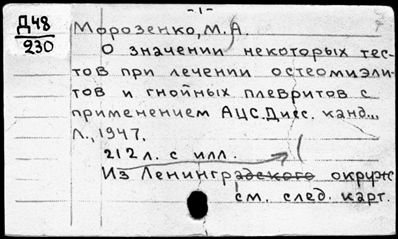 -1-
Д48
230
Морозенко, М.А.
О значении некоторых тес-
тов при лечении остеомиэли-
тов и гнойных плевритов с
применением АЦС. Дисс. канд...
Л., 1947.
212 л. с илл.
Из Ленинградского окружн
см. след. карт.